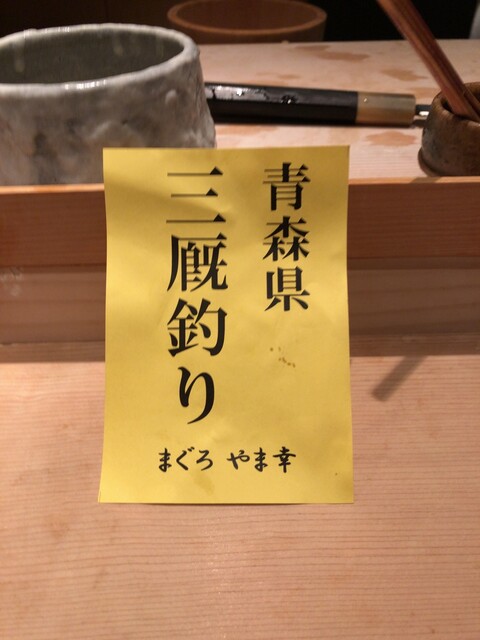 青森県
三厩釣り
まぐろ やま幸